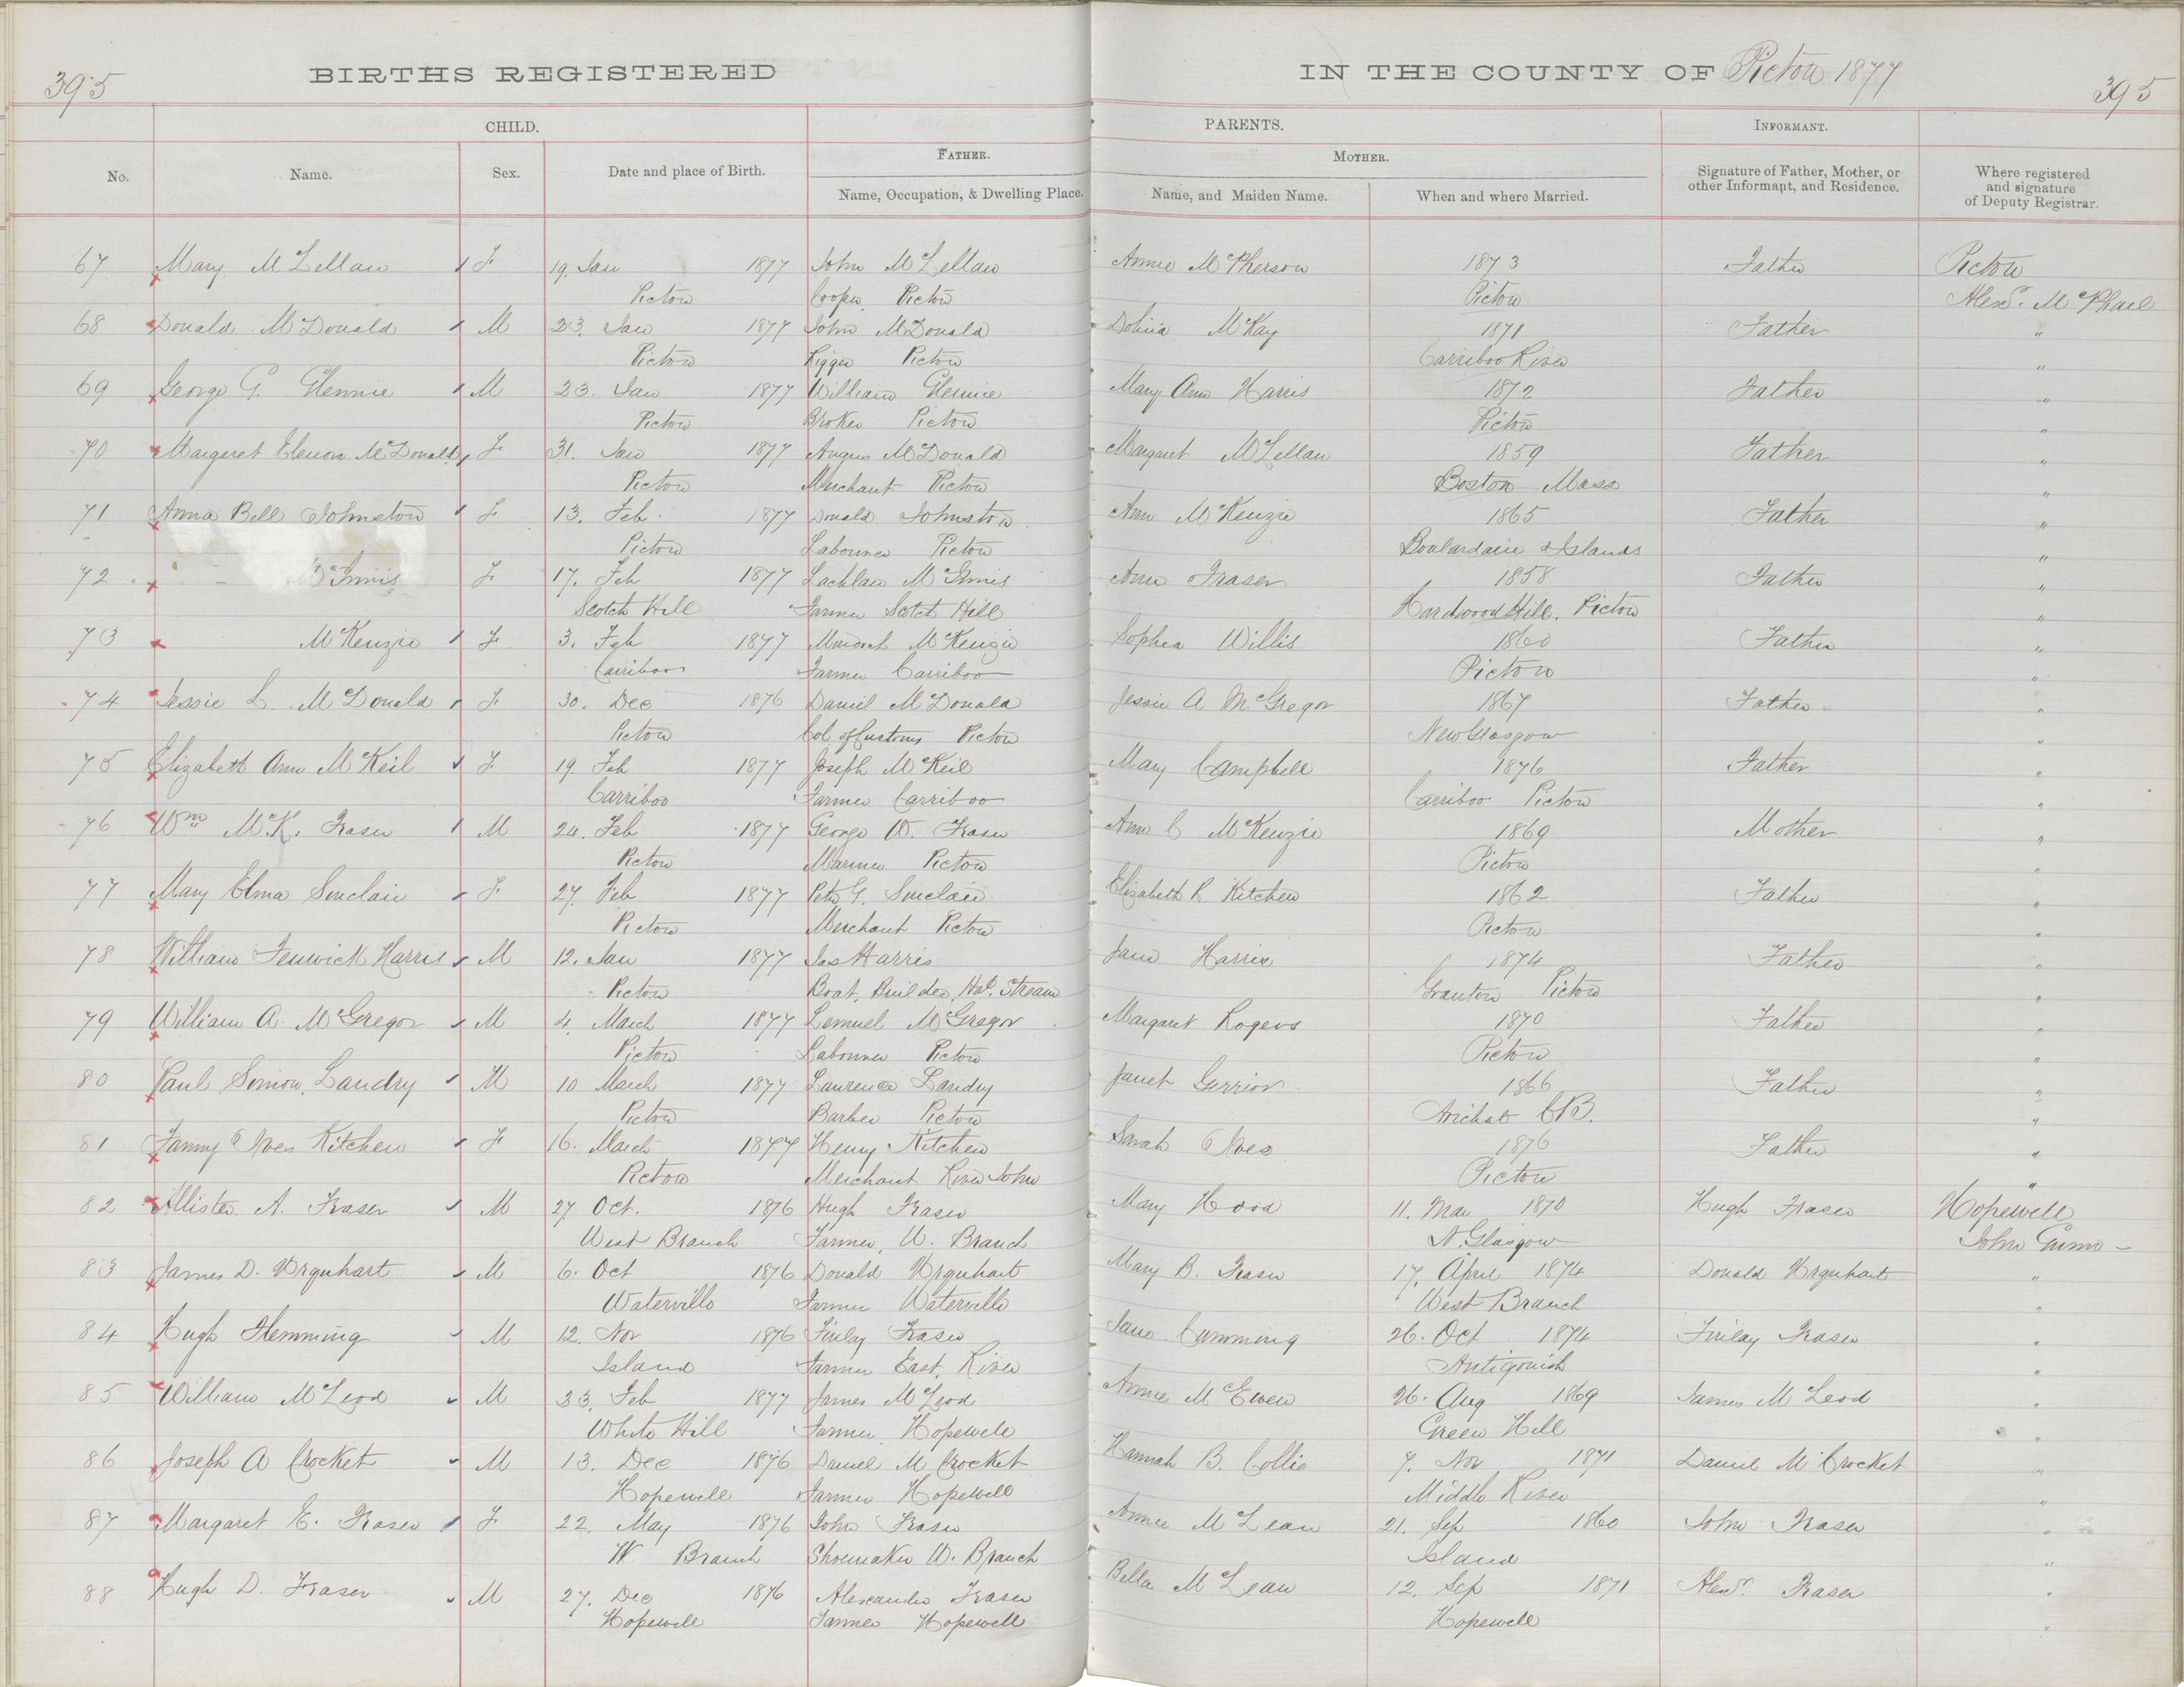 395 BIRTHS REGISTERED IN THE COUNTY OF Pictou 1877 395
CHILD. PARENTS. INFORMANT.
FATHER. MOTHER.
No. Name. Sex. Date and place of Birth. Name, Occupation, & Dwelling Place. Name, and Maiden Name. When and where Married. Signature of Father, Mother, or other Informant, and Residence. Where registered and signature of Deputy Registrar.
67 Mary McLellan F 19. Jan 1877 John McLellan Annie McPherson 1873 Father Pictou
Pictou Cooper Pictou Pictou Alexr. McPhail
68 Donald McDonald M 23. Jan 1877 John McDonald Dolina McKay 1871 Father "
Pictou Rigger Pictou Carriboo River "
69 George G. Glennie M 23. Jan 1877 William Glennie Mary Ann Harris 1872 Father "
Pictou Broker Pictou Pictou "
70 Margeret Elenora McDonald F 31. Jan 1877 Angus McDonald Margaret McLellan 1859 Father "
Pictou Merchant Pictou Boston Mass "
71 Anna Bell Johnston F 13. Feb 1877 Donald Johnston Ann McKenzie 1865 Father "
Pictou Labourer Pictou Boulardaire Islands "
72 McInnis F 17. Feb 1877 Lachlan McInnis Ann Fraser 1858 Father "
Scotch Hill Farmer Scotch Hill Hardwood Hill. Pictou "
73 McKenzie F 3. Feb 1877 Murdoch McKenzie Sophia Willis 1860 Father "
Carriboo Farmer Carriboo Pictou "
74 Jessie L. McDonald F 30. Dec 1876 Daniel McDonald Jessie A McGregor 1867 Father "
Pictou Col of Customs Pictou New Glasgow "
75 Elizabeth Ann McKeil F 19 Feb 1877 Joseph McKeil Mary Campbell 1876 Father "
Carriboo Farmer Carriboo Carriboo Pictou "
76 Wm McK. Fraser M 24. Feb 1877 George W. Fraser Ann C McKenzie 1869 Mother "
Pictou Mariner Pictou Pictou "
77 Mary Elma Sinclair F 27. Feb 1877 Peter G. Sinclair Elizabeth R Kitchen 1862 Father "
Pictou Merchant Pictou Pictou "
78 William Fenwick Harris M 12. Jan 1877 Jas Harris Jane Harris 1874 Father "
Pictou Boat Builder, Hal. Stream Granton Pictou "
79 William A. McGregor M 4. March 1877 Lemuel McGregor Margaret Rogers 1870 Father "
Pictou Labourer Pictou Pictou "
80 Paul Simon Landry M 10 March 1877 Laurence Landry Janet Gerrior 1866 Father "
Pictou Barber Pictou Arichat CB. "
81 Fanny Ives Kitchen F 16. March 1877 Henry Kitchen Sarah Ives 1876 Father "
Pictou Merchant River John Pictou "
82 Allister A. Fraser M 27 Oct. 1876 Hugh Fraser Mary Hood 11. Mar 1870 Hugh Fraser Hopewell
West Branch Farmer, W. Branch N. Glasgow John
83 James D. Urquhart M 6. Oct 1876 Donald Urquhart Mary B. Fraser 17. April 1874 Donald Urquhart "
Waterville Farmer Waterville West Branch "
84 Hugh Flemming M 12. Nov 1876 Finlay Fraser Jane Cumming 26. Oct 1874 Finlay Fraser "
Island Farmer East River Antigonish "
85 William McLeod M 23. Feb 1877 James McLeod Annie McEwen 26. Aug 1869 James McLeod "
White Hill Farmer Hopewell Green Hill "
86 Joseph A Crocket M 13. Dec 1876 Daniel M Crocket Hannah B. Collie 7. Nov 1871 Daniel M Crocket "
Hopewell Farmer Hopewell Middle River "
87 Margaret E. Fraser F 22. May 1876 John Fraser Annie McLean 21. Sep 1860 John Fraser "
W Branch Shoemaker W. Branch Island "
88 Hugh D. Fraser M 27. Dec 1876 Alexander Fraser Bella McLean 12. Sep 1871 Alexr. Fraser "
Hopewell Farmer Hopewell Hopewell "